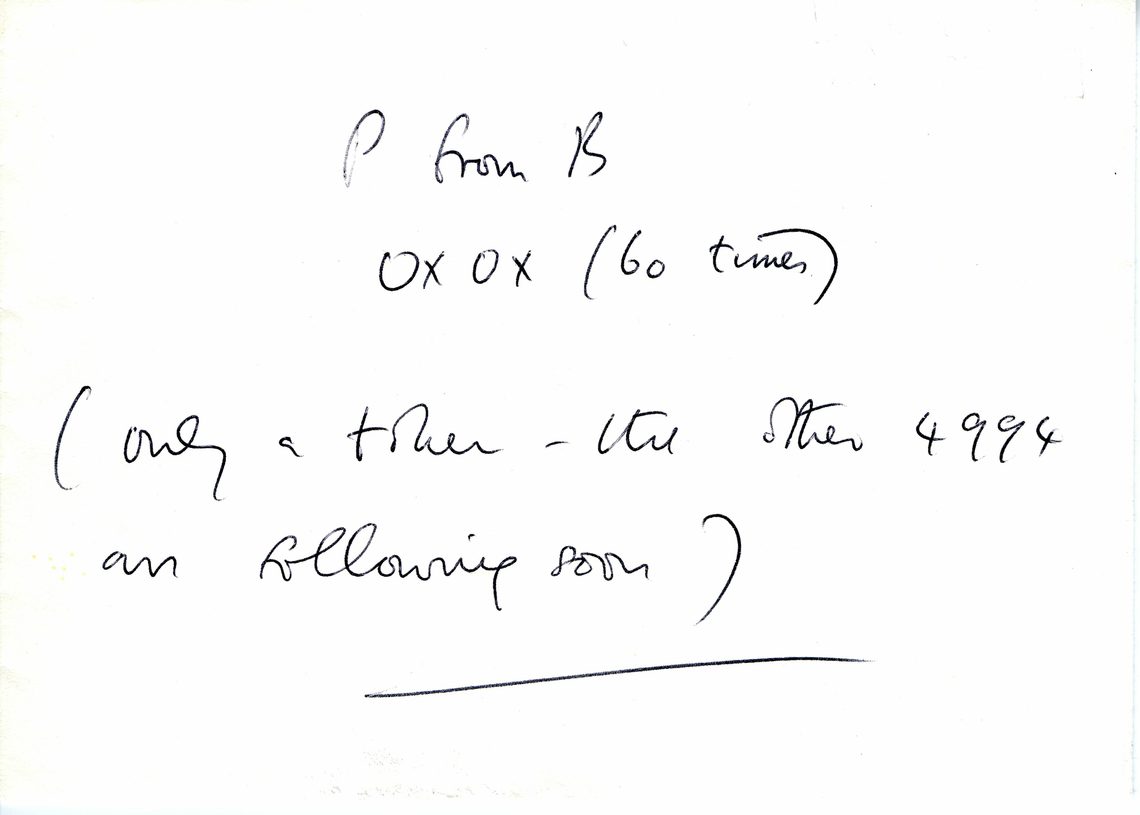 P from B
OX OX (60 times)
(only a token - the other 4994
are following soon)